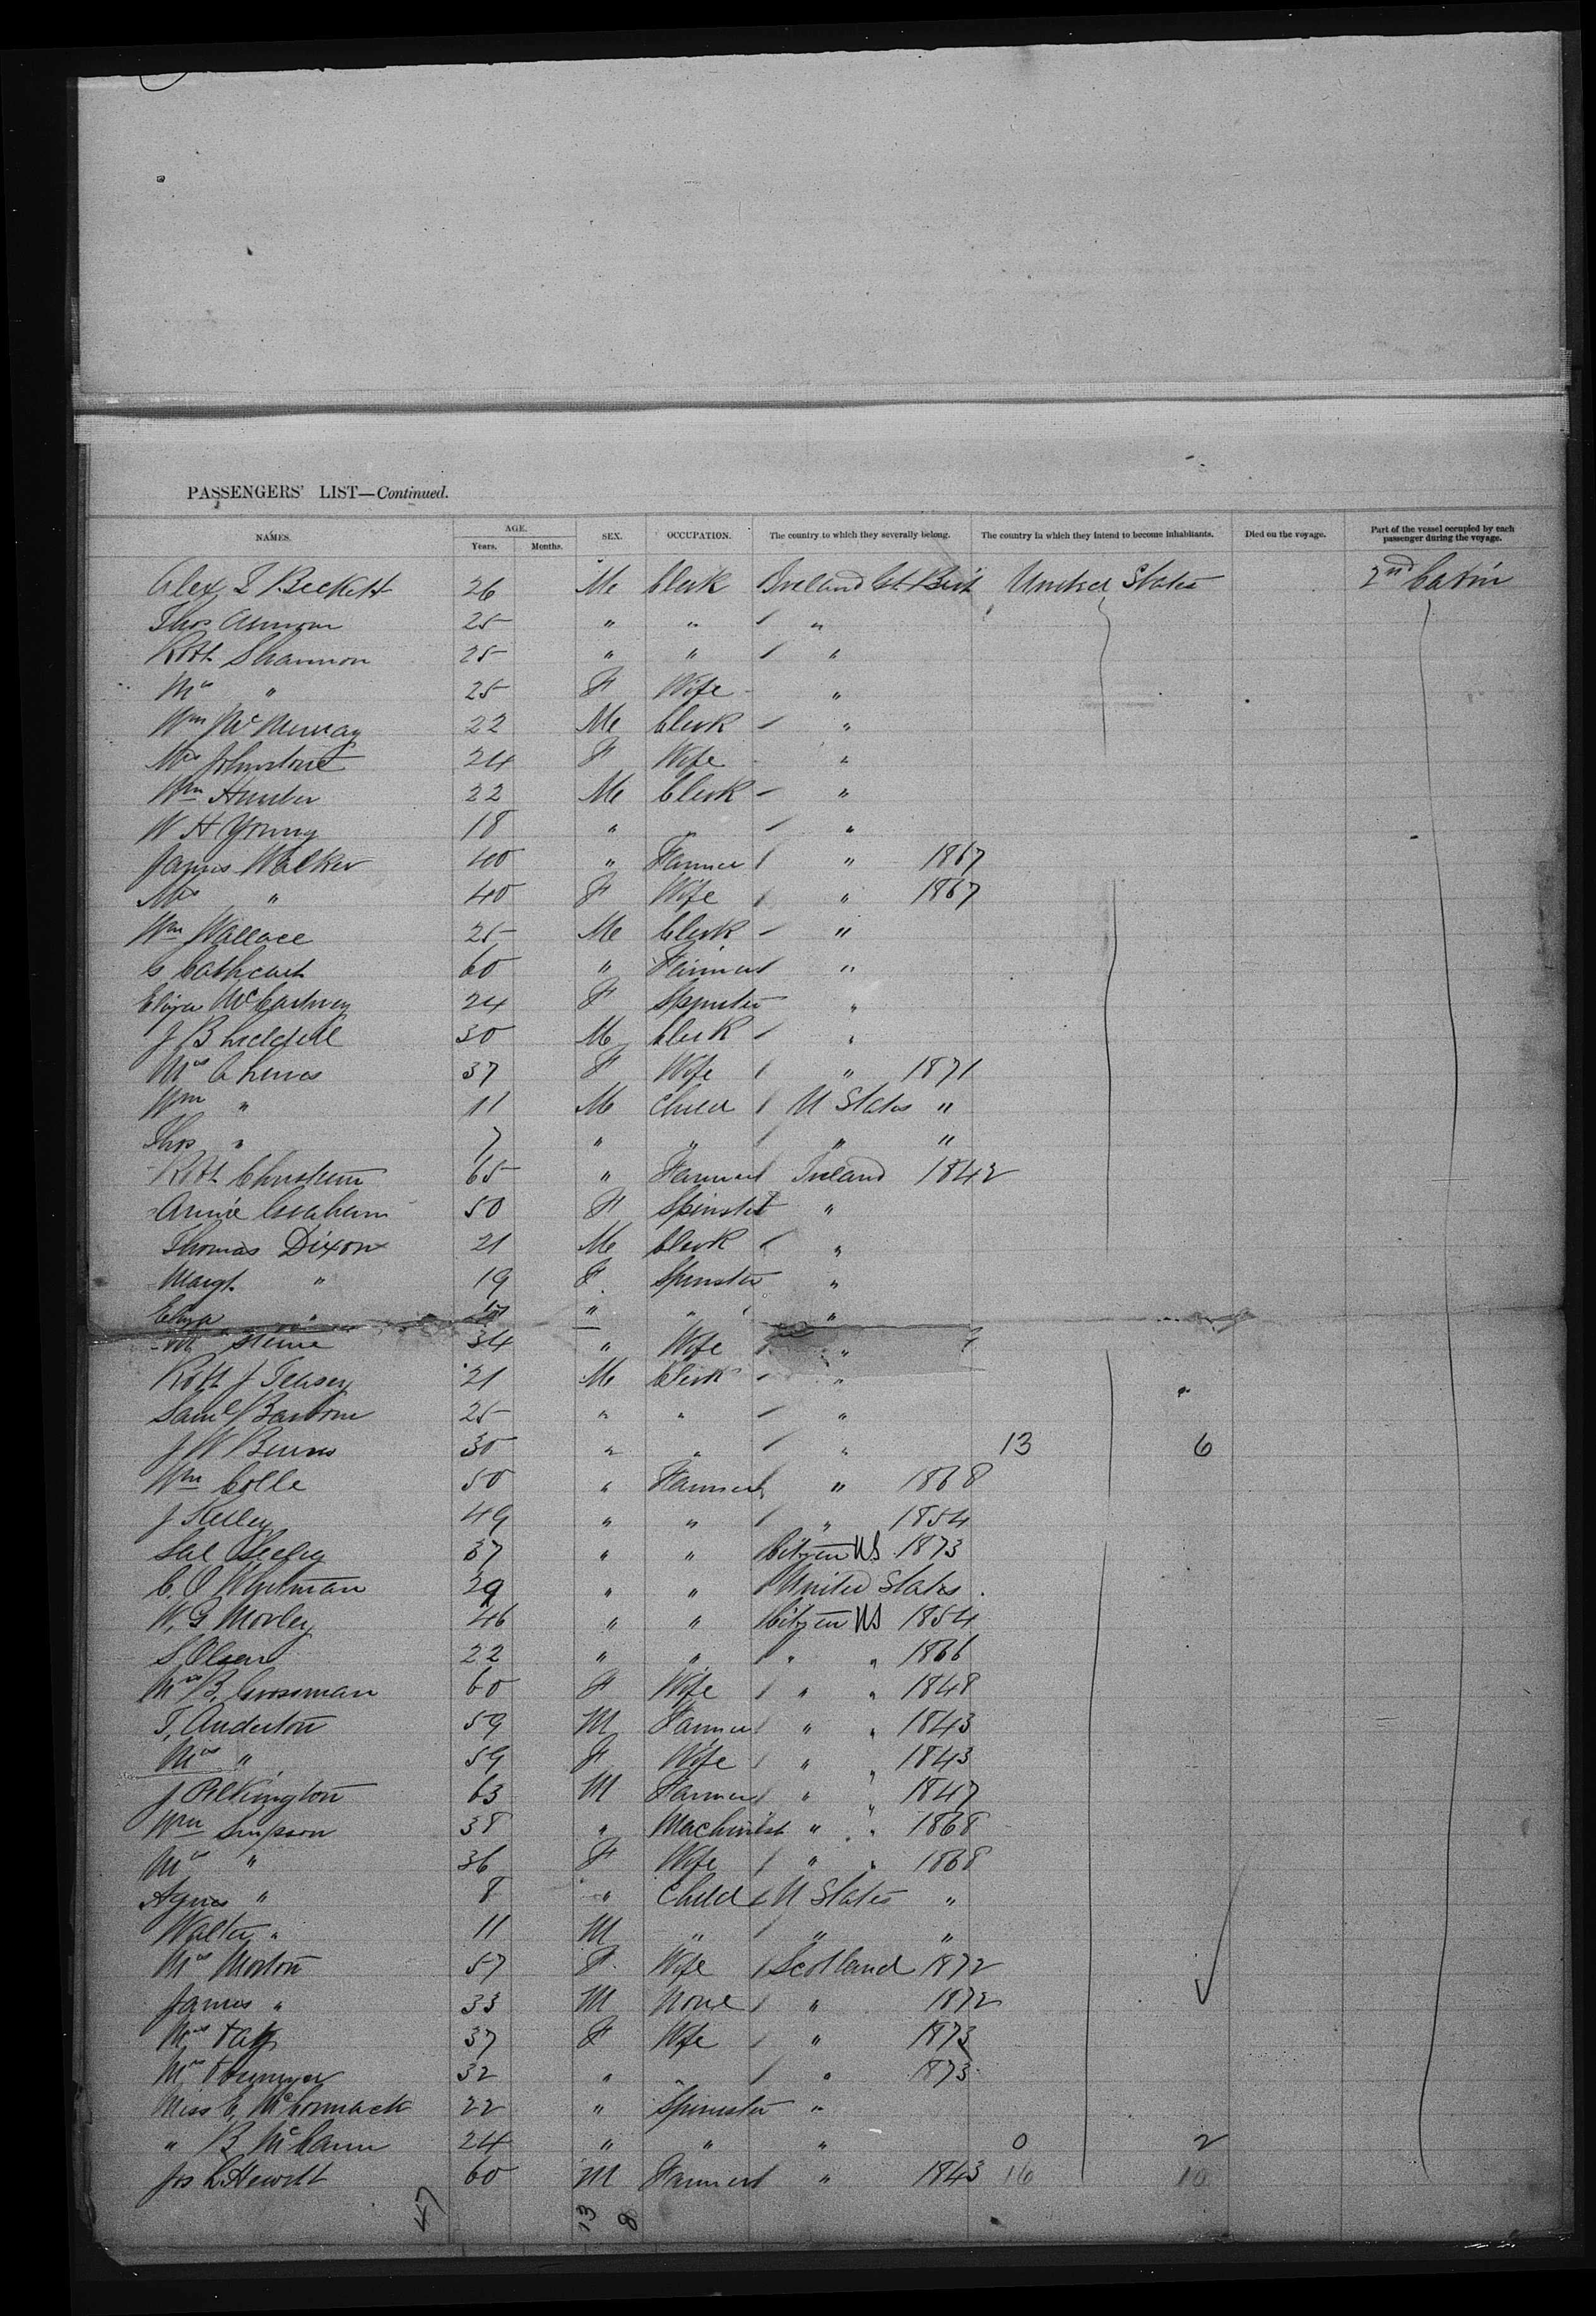 PASSENGERS' LIST—Continued.
NAMES. AGE. Years. Months. SEX. OCCUPATION. The country to which they severally belong. The country in which they intend to become inhabitants. Died on the voyage. Part of the vessel occupied by each passenger during the voyage.
Alex L Beckett 26 M Clerk Ireland Gt Brit United States 2nd Cabin
Thos 25 " " "
Robt Shannon 25 " " "
Mrs " 25 F Wife "
Wm McMurray 22 M Clerk "
Mrs Johnstone 24 F Wife "
Wm Hunter 22 M Clerk "
W H Young 18 " " "
James Walker 40 " Farmer " 1867
Mrs " 40 F Wife " 1867
Wm Wallace 25 M Clerk "
C Cathcart 60 " Farmer "
Eliza McCartney 24 F Spinster "
J B Liddell 30 M Clerk "
Mrs 37 F Wife " 1871
Wm " 11 M Child U States "
Thos " 7 " " " "
Robt 65 " Farmer Ireland 1842
Annie Graham 50 F Spinster "
Thomas Dixon 21 M Clerk "
Margt " 19 F Spinster "
Eliza " " " "
34 " Wife "
Robt J 21 M Clerk "
Saml Barbour 25 " " "
J W Burns 30 " " " 13 6
Wm Colle 50 " Farmer " 1868
J 49 " " " 1854
37 " " Citizen US 1873
C. O Whitman 29 " " United States
W. G Morley 46 " " Citizen US 1854
S Olsen 22 " " " " 1866
Mrs B. Grossman 60 F Wife " " 1848
T. Anderton 59 M Farmer " " 1843
Mrs " 59 F Wife " " 1843
J Pilkington 63 M Farmer " " 1847
Wm Simpson 38 " Machinist " " 1868
Mrs " 36 F Wife " " 1868
Agnes " 8 " Child U States "
Walter " 11 M " " "
Mrs Morton 57 F Wife Scotland 1872
James " 33 M None " 1872
Mrs 37 F Wife " 1873
Mrs 32 " " " 1873
Miss E. McCormack 22 " Spinster "
" B McCann 24 " " " 0 2
Jos L Hewitt 60 M Farmer " 1843 16 10
47 13 8